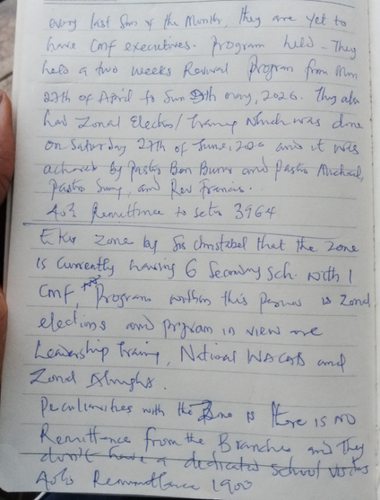 every last Sun of the Month, they are yet to
have Cmf executives. Program held - They
held a two weeks Revival Program from Mon
27th of April to Sun th May, 2026. They also
had Zonal Election/Training which was done
on Saturday 27th of June, 2026 and it was
achored by Pastor Ben and Pastor Michael,
Pastor Sunny, and Rev Francis.
40% Remittance to sets 3964
Zone by Sis Christabel that the Zone
is Currently having 6 Secondary Sch. with 1
Cmf, Program within this Period is Zonal
elections and program in view are
Leadership Training, National and
Zonal
Peculiarities with the Zone is there is NO
Remittance from the Branches and They
don't have a dedicated school visits
40% Remmittance 1900